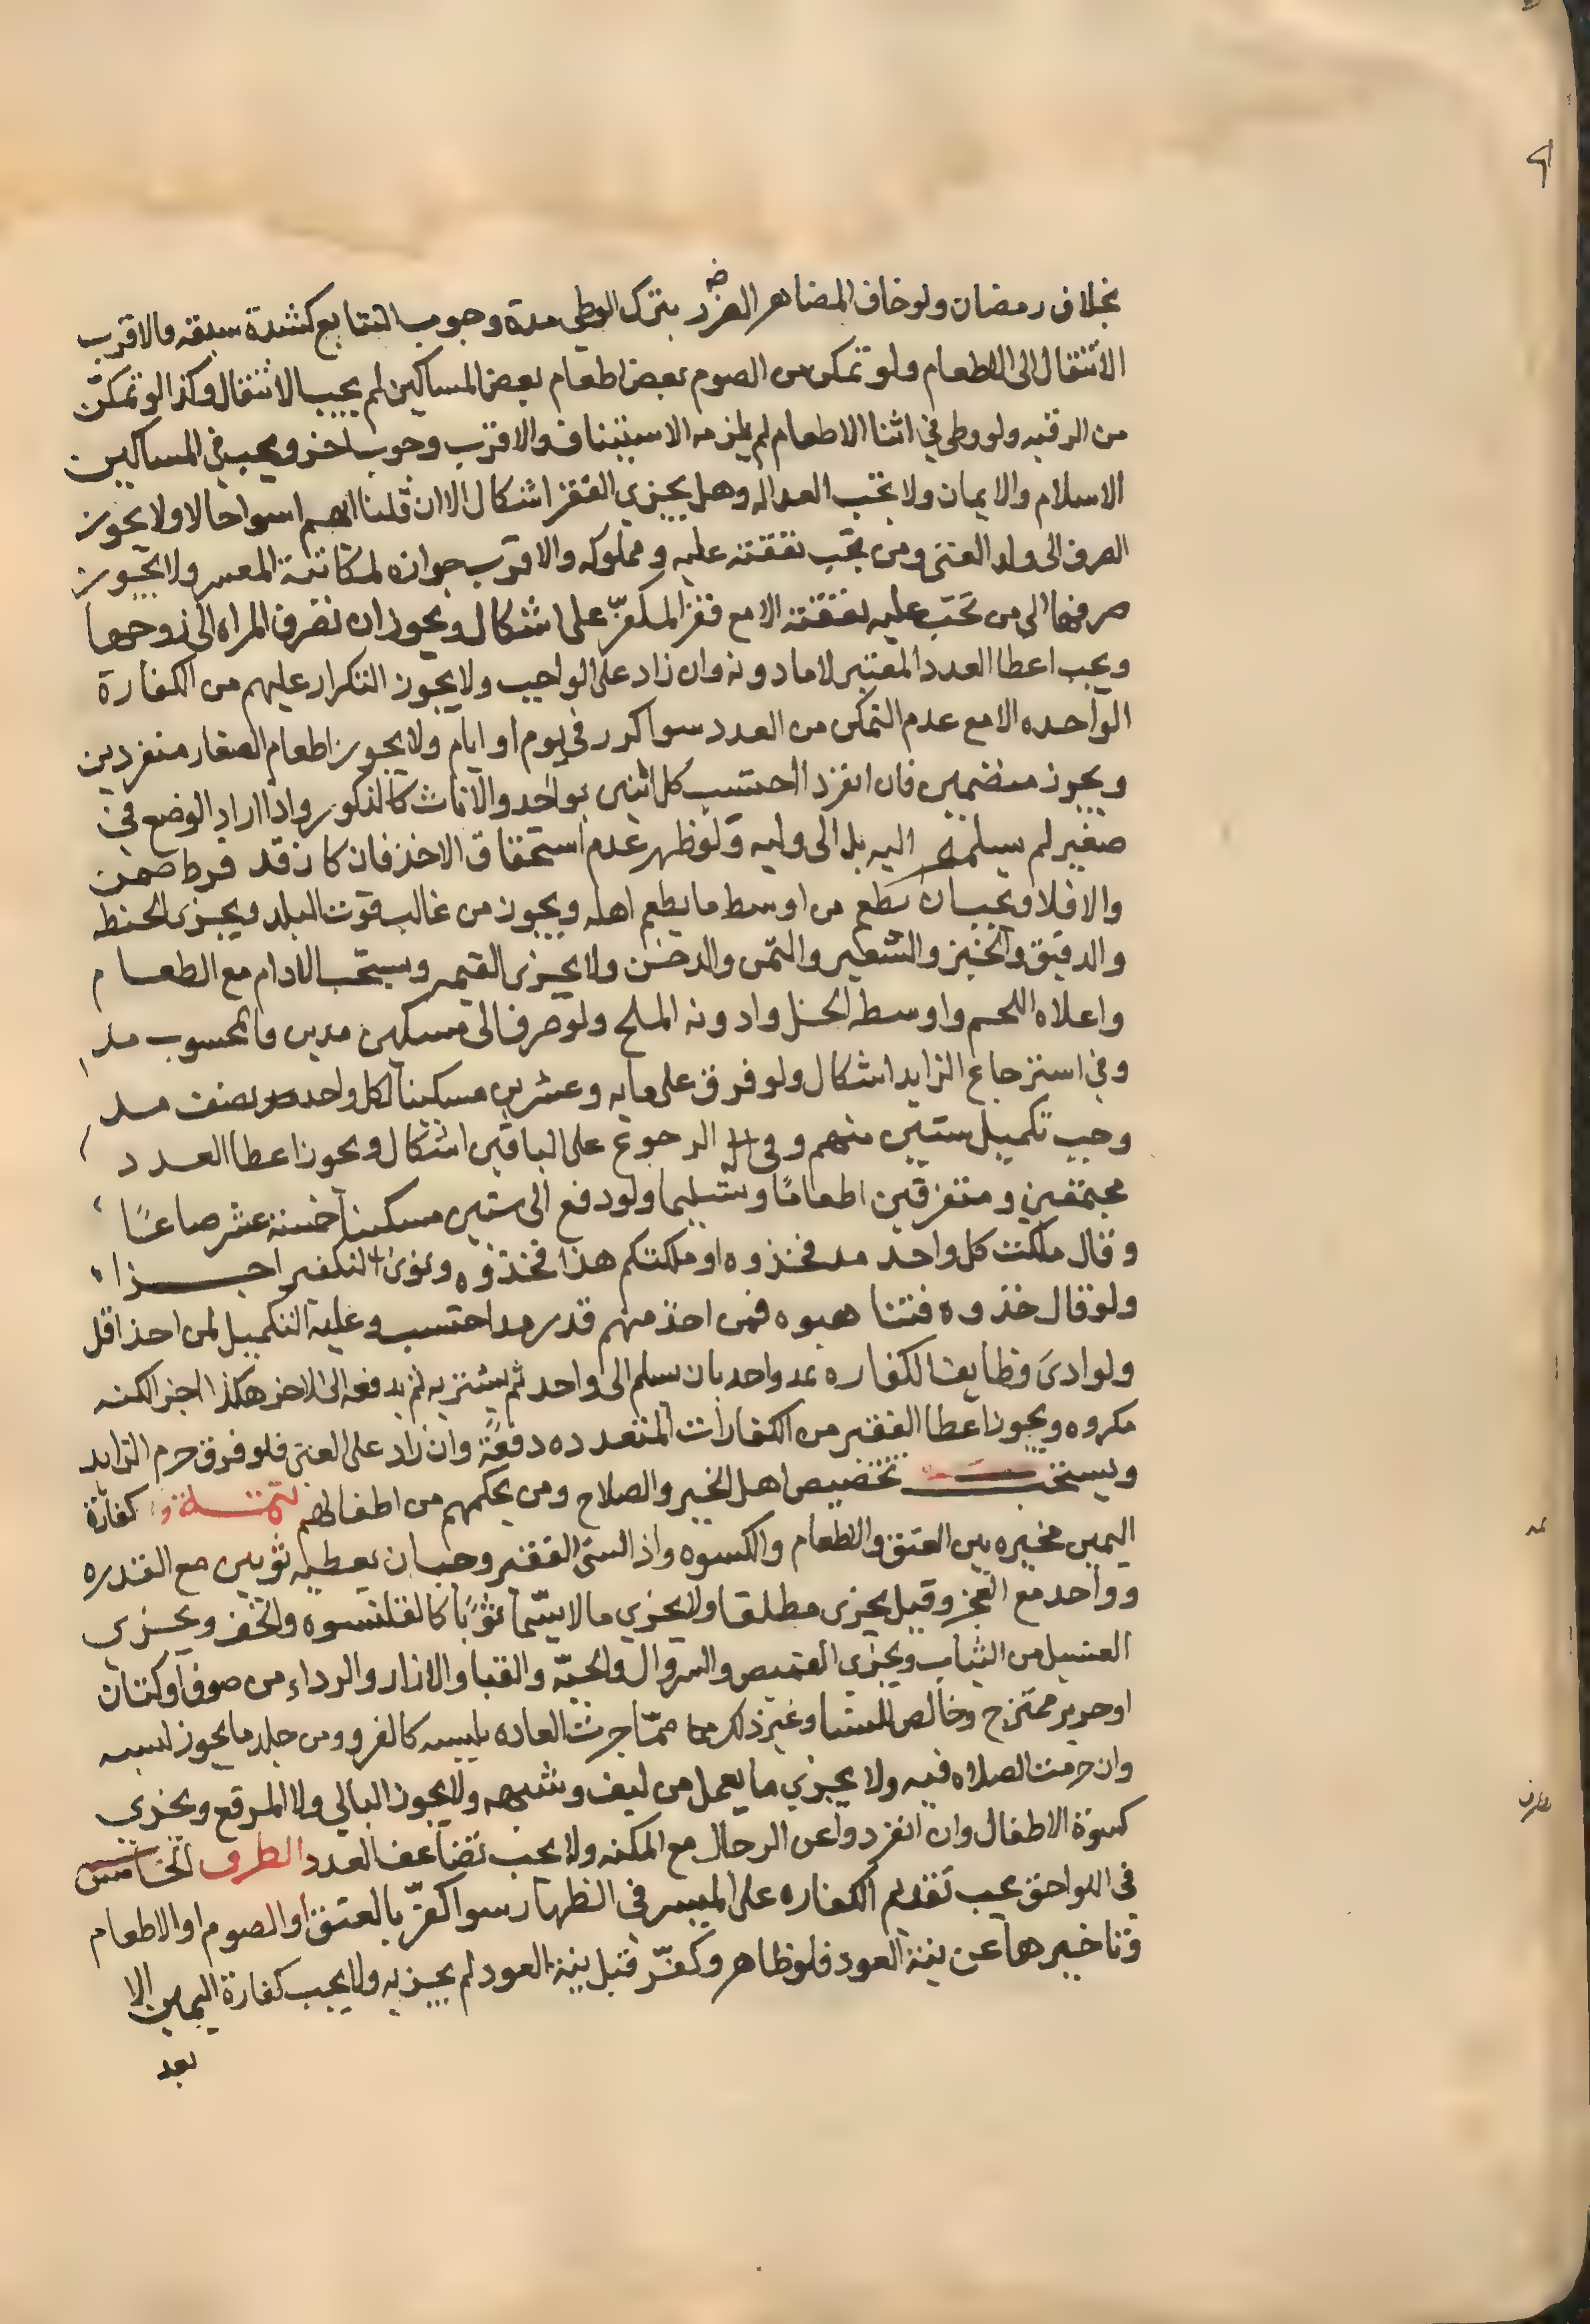 بخلاف رمضان ولو خاف المضاهر الضرر بترك الوطي مدة وجوب التتابع كشدة سبقه فالاقرب
الانتقال الى الاطعام ولو تمكن من الصوم بعض اطعام بعض المساكين لم يجب الانتقال وكذا لو تمكن
من الرقبه ولو وطي في اثنا الاطعام لم يلزمه الاستيناف والاقرب وجوب اخر ويجب في المساكين
الاسلام والايمان ولا يجب العداله وهل يجزي الفقرا اشكال الا ان قلنا انهم اسوا حالا ولا يجوز
الصرف الى ولد الغني ومن يجب نفقته عليه ومملوكه والاقرب جوازه لمكاتبة المعسر ولا يجوز
صرفها الى من تجب عليه نفقته الا مع فقر المكفر على اشكال ويجوز ان تصرف المراه الى زوجها
ويجب اعطا العدد المعتبر لا ما دونه وان زاد على الواجب ولا يجوز التكرار عليهم من الكفارة
الواحده الا مع عدم التمكن من العدد سوا كرر في يوم او ايام ولا يجوز اطعام الصغار منفردين
ويجوز منضمين فان انفردا احتسب كل اثنين بواحد والاناث كالذكور واذا اراد الوضع في
صغير لم يسلمه اليه بل الى وليه ولو ظهر عدم استحقاق الاخذ فان كان قد فرط ضمن
والا فلا ويجب ان يطعم من اوسط ما يطعم اهله ويجوز من غالب قوت البلد ويجزي الحنطه
والدقيق والخبز والشعير والتمر والدخن ولا يجزي القيمه ويستحب الادام مع الطعام
واعلاه اللحم واوسطه الخل وادونه الملح ولو صرف الى مسكين مدين فالمحسوب مد
وفي استرجاع الزايد اشكال ولو فرق على مايه وعشرين مسكينا لكل واحد نصف مد
وجب تكميل ستين منهم وفي الرجوع على الباقين اشكال ويجوز اعطا العدد
مجتمعين ومتفرقين اطعاما وتسليما ولو دفع الى ستين مسكينا خمسة عشر صاعا
وقال ملكت كل واحد مد فخذوه او ملكتكم هذا فخذوه ونوى التكفير اجزا
ولو قال خذوه فتنا هبوه فمن اخذ منهم قدر مد احتسب وعليه التكميل لمن اخذ اقل
ولو ادى وظايف الكفاره بمد واحد بان سلم الى واحد ثم يشتريه ثم يدفعه الى الاخر هكذا اجزا لكنه
مكروه ويجوز اعطا الفقير من الكفارات المتعدده دفعة وان زاد على الغنى فلو فرق حرم الزايد
ويستحب تخصيص اهل الخير والصلاح ومن يحكمهم من اطفالهم تتمة و كفارة
اليمين مخيره بين العتق والطعام والكسوه واذا كسى الفقير وجب ان يعطيه ثوبين مع القدره
وواحد مع العجز وقيل يجزي مطلقا ولا يجزي ما لا يسما ثوبا كالقلنسوه والخف ويجزي
الغسيل من الثياب ويجزي القميص والسروال والجبه والقبا والازار والرداء من صوف او كتان
او حرير ممتزج وخالص للنسا وغير ذلك مما جرت العاده بلبسه كالفرو ومن جلد ما يجوز لبسه
وان حرمت الصلاه فيه ولا يجزي ما يعمل من ليف وشبهه ولا يجوز البالي ولا المرقع ويجزي
كسوة الاطفال وان انفردوا عن الرجال مع المكنه ولا يجب تضاعف العدد الطرف الخامس
في اللواحق يجب تقديم الكفاره على المسيس في الظهار سوا كفر بالعتق او الصوم او الاطعام
وتاخيرها عن نية العود فلو ظاهر وكفر قبل نية العود لم يجزيه ولا يجب كفارة اليمين الا
بعد